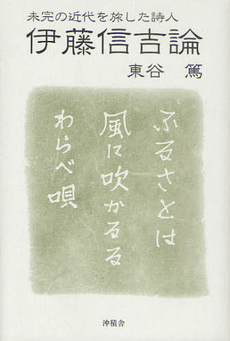 未完の近代を旅した詩人
伊藤信吉論
東谷 篤
ふるさとは
風に吹かるる
わらべ唄
沖積舎